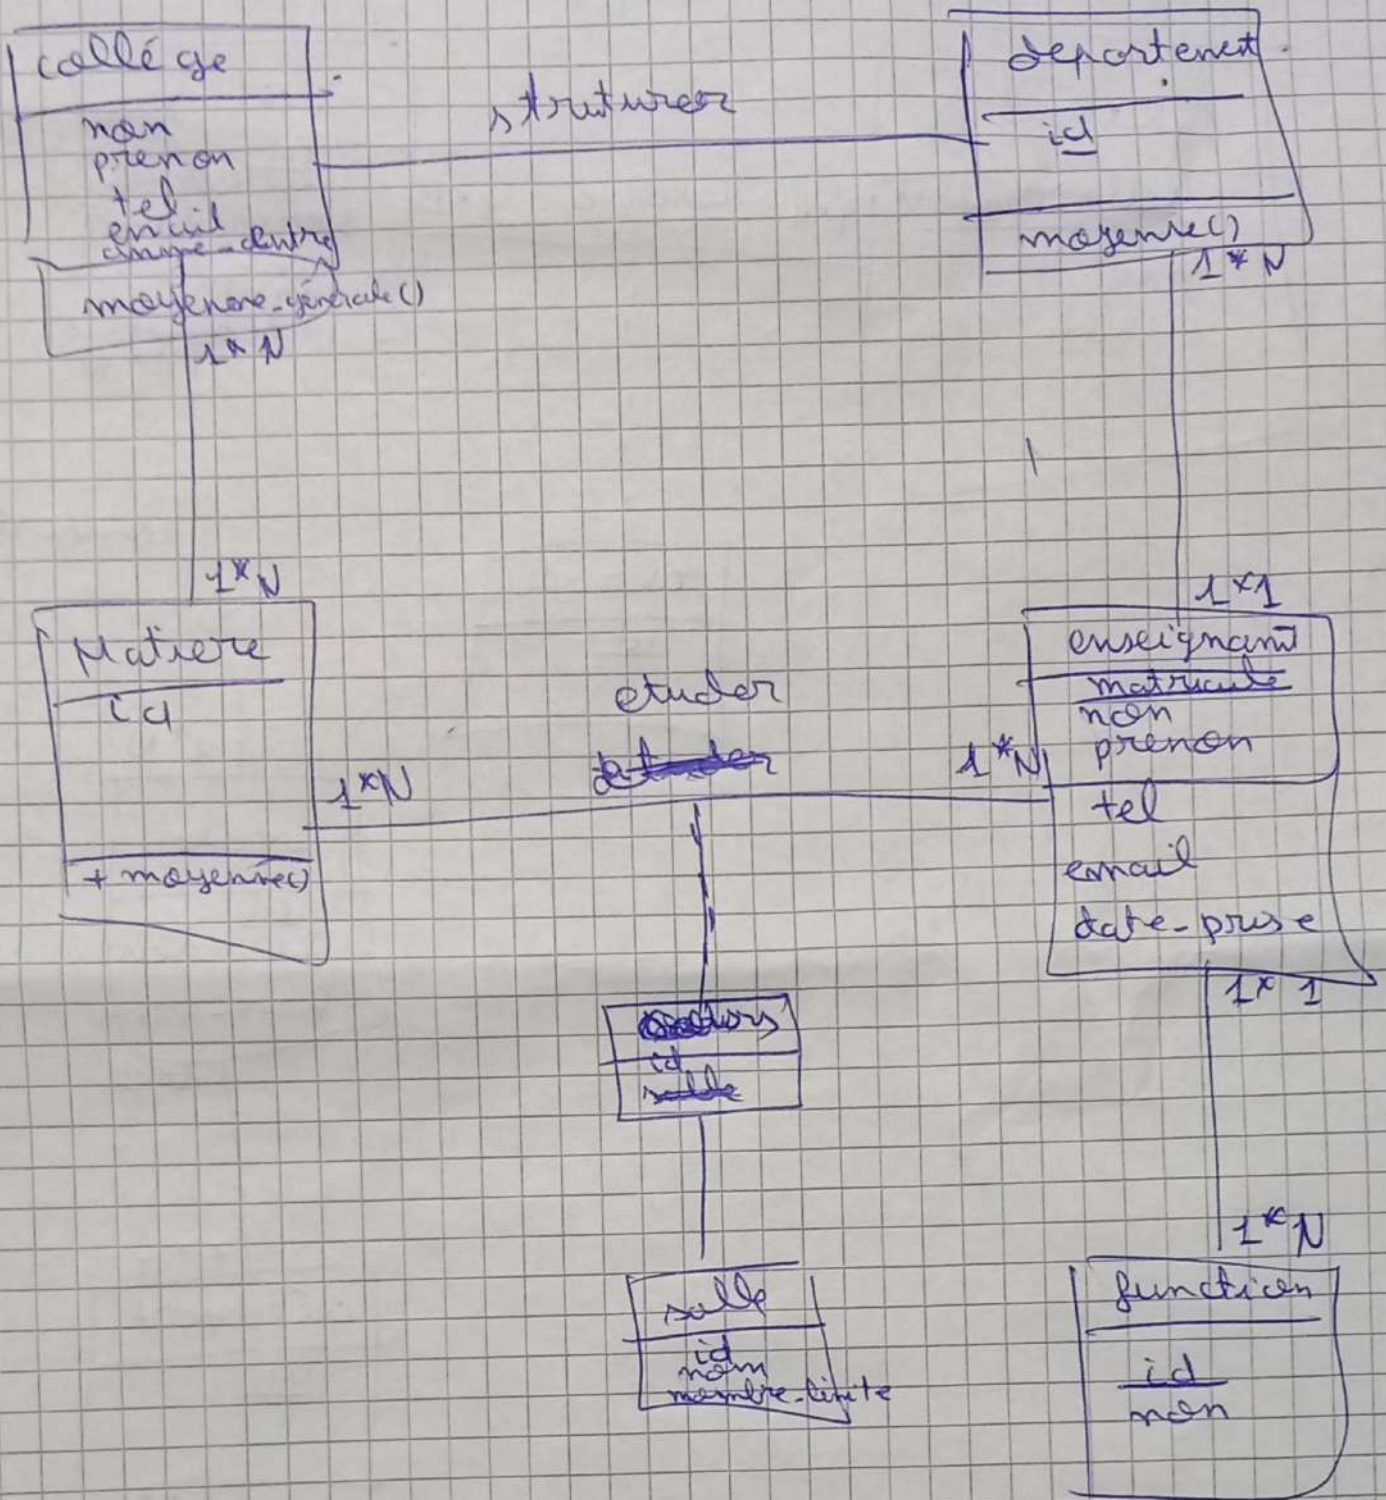 collége
non
prenon
tel
email
moyenene-générale()
1*N
struturer
departenent
id
moyenne()
1*N
1*N
Matiere
id
+ moyenne()
1*N
etuder
1*N
1*1
enseignant
matricule
non
prenon
tel
email
date-prise
1*1
id
salle
salle
id
nom
nombre-limite
1*N
function
id
non